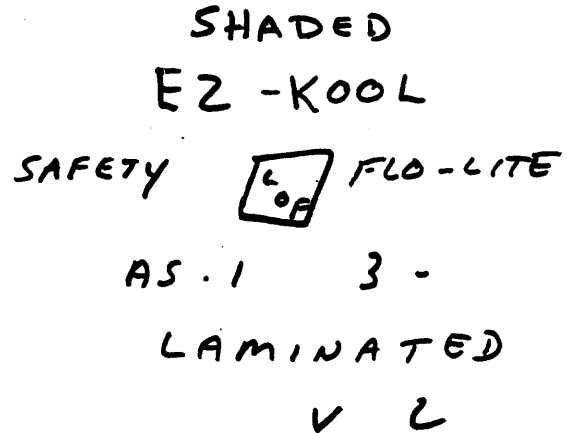 SHADED
EZ-KOOL
SAFETY LOF FLO-LITE
AS.1 3-
LAMINATED
V L